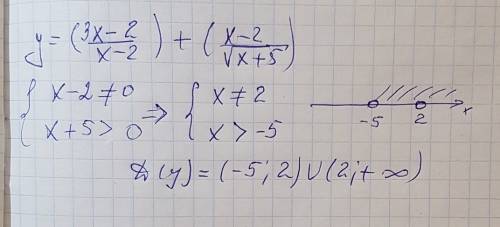 y = (3x-2/x-2) + (x-2/√x+5)
{ x-2≠0 ⇒ { x≠2
{ x+5>0 ⇒ { x>-5
-5 2 x
D(y) = (-5; 2) ∪ (2; +∞)